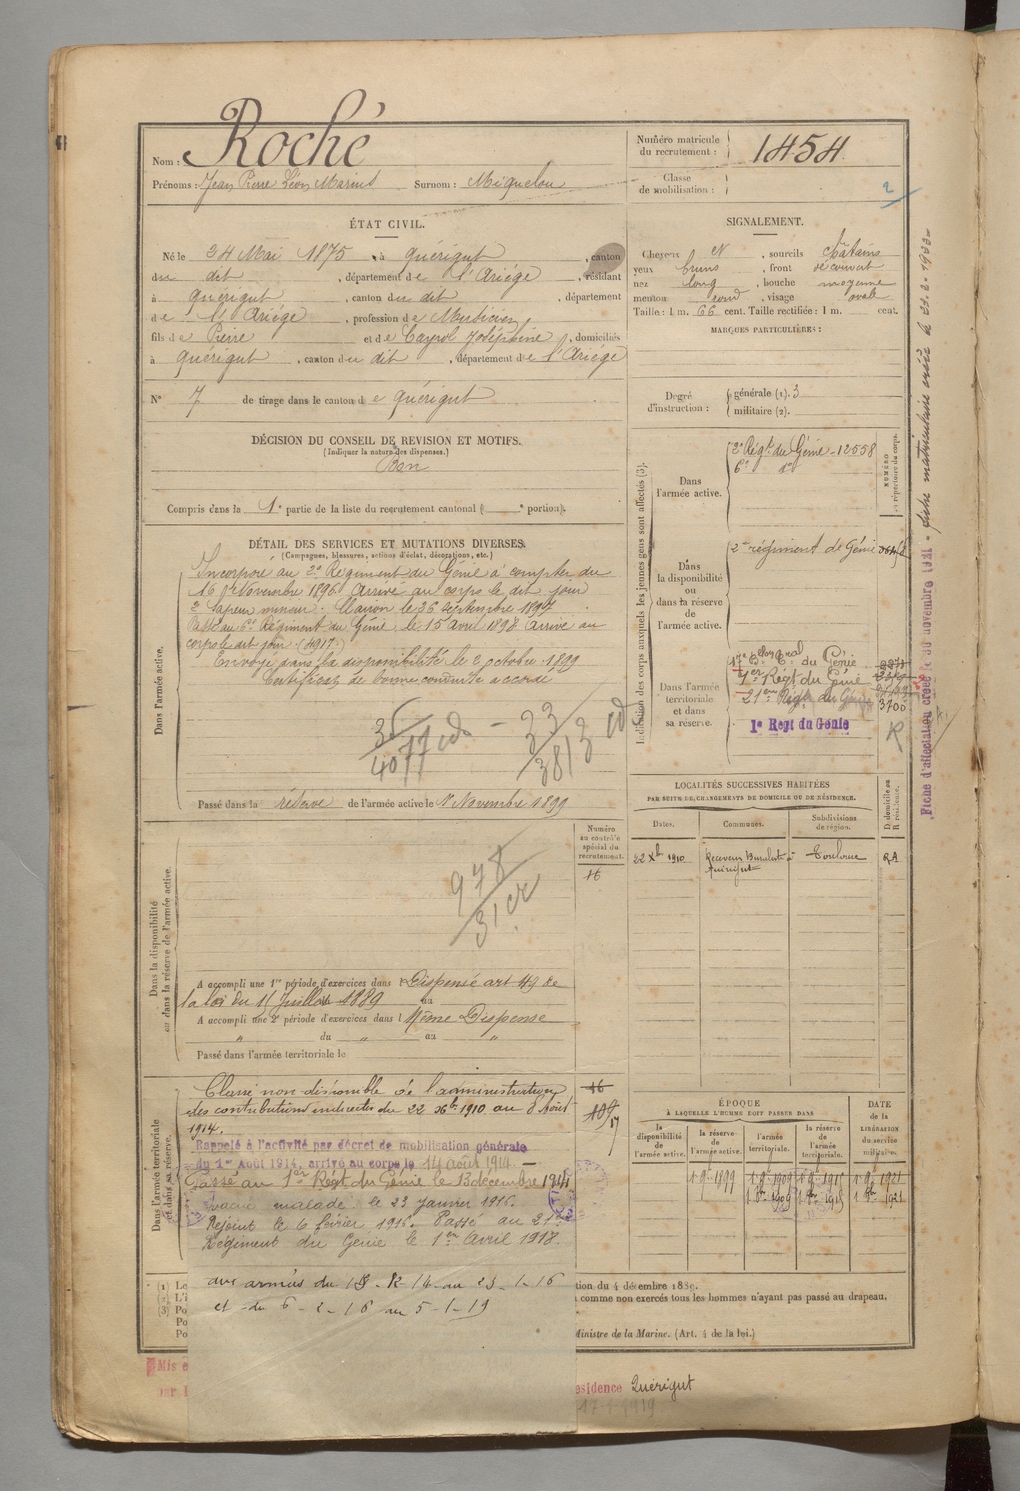 Nom : Roché
Prénoms : Jean Pierre Léon Marius Surnom : Miquelou
Numéro matricule
du recrutement : 1454
Classe
de mobilisation :
2
ÉTAT CIVIL.
Né le 24 Mai 1875, à Quérigut, canton
du dit, département de l'Ariège, résidant
à Quérigut, canton du dit, département
de l'Ariège, profession de
fils de Pierre et de Cayrol Joséphine, domiciliés
à Quérigut, canton du dit, département de l'Ariège
N° 7 de tirage dans le canton de Quérigut
DÉCISION DU CONSEIL DE REVISION ET MOTIFS.
(Indiquer la nature des dispenses.)
Bon
Compris dans la 1e partie de la liste du recrutement cantonal ( e portion).
SIGNALEMENT.
Cheveux N, sourcils châtains
yeux bruns, front découvert
nez long, bouche moyenne
menton rond, visage ovale
Taille : 1 m. 66 cent. Taille rectifiée : 1 m. cent.
MARQUES PARTICULIÈRES :
Degré
d'instruction :
générale (1). 3
militaire (2).
DÉTAIL DES SERVICES ET MUTATIONS DIVERSES.
(Campagnes, blessures, actions d'éclat, décorations, etc.)
Dans l'armée active.
Incorporé au 2e Régiment du Génie à compter du
16 Novembre 1896. Arrivé au corps le dit jour
2e Sapeur mineur. Clairon le 26 Septembre 1897
Passé au 6e Régiment du Génie le 15 Avril 1898. Arrivé au
corps le dit jour (4917)
Envoyé dans la disponibilité le 2 octobre 1899
Certificat de bonne conduite accordé
35
4077
33
3813
Passé dans la réserve de l'armée active le 1er Novembre 1899
Indication des corps auxquels les jeunes gens sont affectés (3).
NUMÉRO
au répertoire du corps.
Dans
l'armée active.
2e Régt du Génie - 12558
6e do
Dans
la disponibilité
ou
dans la réserve
de
l'armée active.
2me régiment de Génie
Dans l'armée
territoriale
et dans
sa réserve.
du Génie
1er Régt du Génie
21eme Régt du Génie
3700
1e Regt du Génie
R
LOCALITÉS SUCCESSIVES HABITÉES
PAR SUITE DE CHANGEMENTS DE DOMICILE OU DE RÉSIDENCE.
D domicile ou
R résidence.
Dates. Communes. Subdivisions
de région.
22 Xbre 1910 Receveur Buraliste à Toulouse RA
Quérigut
Dans la disponibilité
ou dans la réserve de l'armée active.
Numéro
au contrôle
spécial du
recrutement.
16
978
31
A accompli une 1re période d'exercices dans l Dispensé art 49 de
la loi du 15 Juillet 1889 au
A accompli une 2e période d'exercices dans l Même Dispense
" du " au "
Passé dans l'armée territoriale le
Dans l'armée territoriale
et dans sa réserve.
Classé non-disponible de l'administration
des contributions indirectes du 22 Xbre 1910 au 8 Août
1914.
Rappelé à l'activité par décret de mobilisation générale
du 1er Août 1914, arrivé au corps le 14 août 1914
Passé au 1er Régt du Génie le 13 décembre 1914
Évacué malade le 23 janvier 1916.
Rejoint le 6 février 1916. Passé au 21e
Régiment du Génie le 1er Avril 1918.
aux armées du 13-12-14 au 23-1-16
et du 6-2-16 au 5-1-19
16
109
17
ÉPOQUE
À LAQUELLE L'HOMME DOIT PASSER DANS
DATE
de la
LIBÉRATION
du service
militaire.
la
disponibilité
de l'armée active.
la réserve
de
l'armée active.
l'armée
territoriale.
la réserve
de
l'armée
territoriale.
1 9bre 1899 1 9bre 1909 1 9bre 1915 1 9bre 1921
1 8bre 1909 1 8bre 1915 1 8bre 1921
(1) Le
(2) L'i
(3) Po
Po
tion du 4 décembre 1889.
comme non exercés tous les hommes n'ayant pas passé au drapeau.
Ministre de la Marine. (Art. 4 de la loi.)
Mis e
par l
esidence Quérigut
17-1-1919
Fiche d'affectation créée le 30 novembre 1921 - fiche matriculaire créée le 22.2.1933-